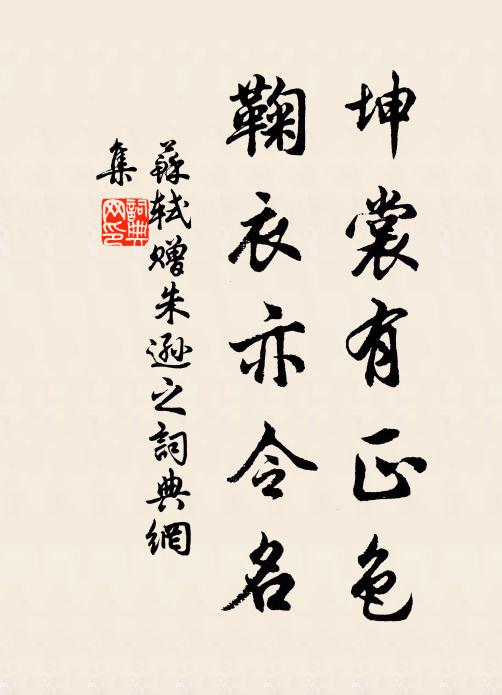 坤裳有正色
鞠衣亦令名
蘇軾贈朱遜之詞典網
集
詞典
网印